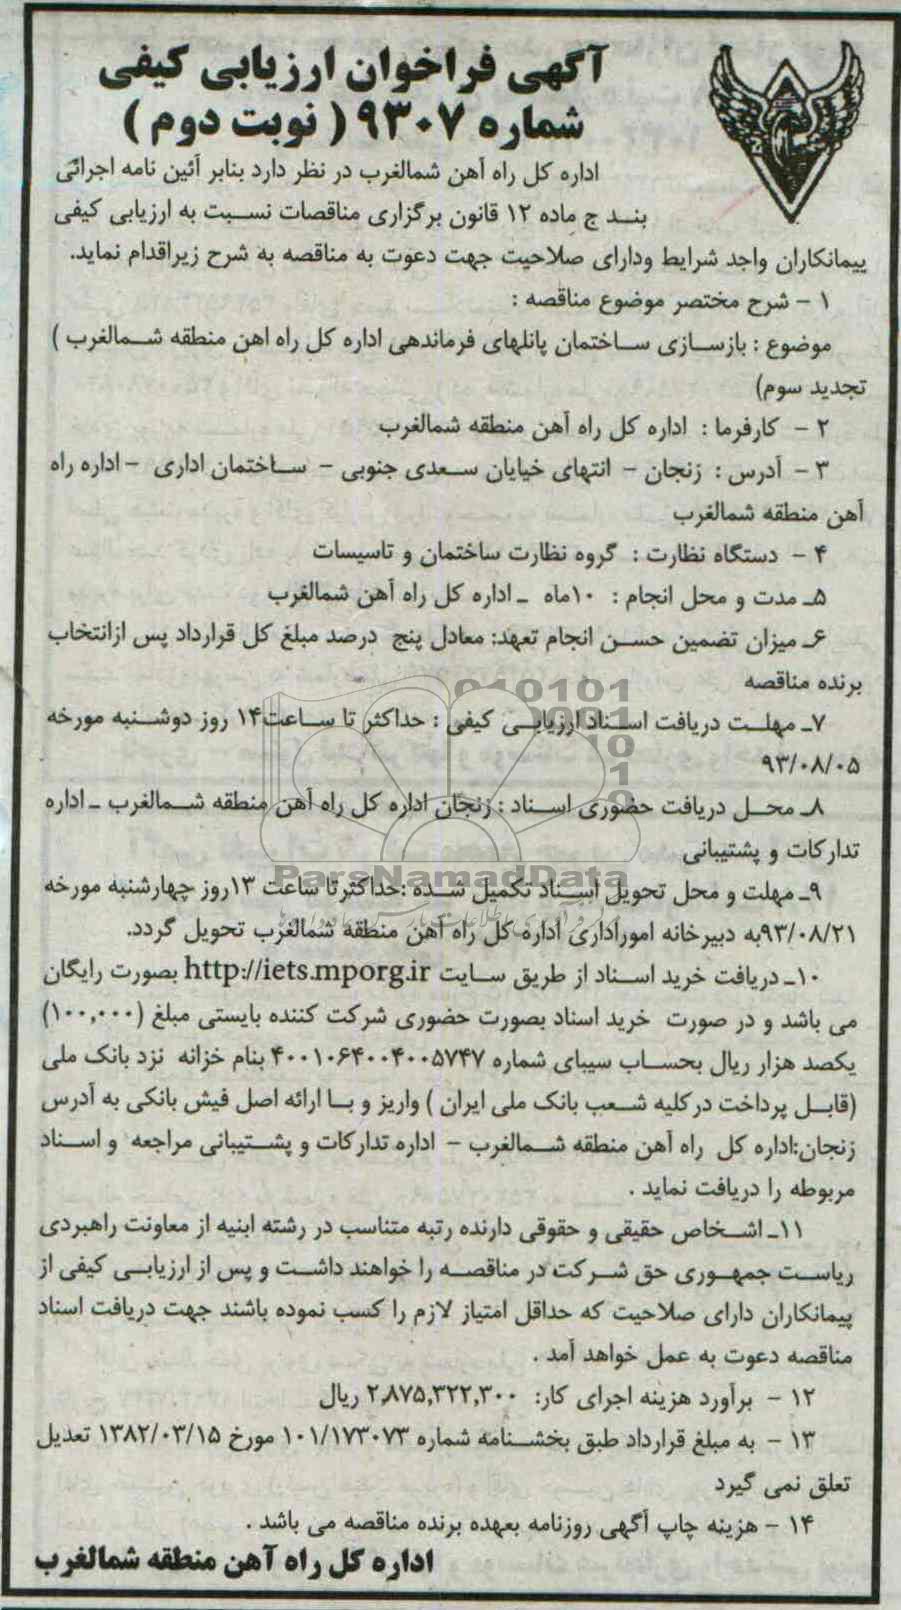 آگهی فراخوان ارزیابی کیفی
شماره ۹۳۰۷ ( نوبت دوم )
اداره کل راه آهن شمالغرب در نظر دارد بنابر آئین نامه اجرائی
بند ج ماده ۱۲ قانون برگزاری مناقصات نسبت به ارزیابی کیفی
پیمانکاران واجد شرایط ودارای صلاحیت جهت دعوت به مناقصه به شرح زیراقدام نماید.
۱ – شرح مختصر موضوع مناقصه :
موضوع : بازسازی ساختمان پانلهای فرماندهی اداره کل راه اهن منطقه شمالغرب )
تجدید سوم)
۲ – کارفرما : اداره کل راه آهن منطقه شمالغرب
۳ – آدرس : زنجان – انتهای خیابان سعدی جنوبی – ساختمان اداری – اداره راه
آهن منطقه شمالغرب
۴ – دستگاه نظارت : گروه نظارت ساختمان و تاسیسات
۵ـ مدت و محل انجام : ۱۰ماه ـ اداره کل راه آهن شمالغرب
۶ـ میزان تضمین حسن انجام تعهد: معادل پنج درصد مبلغ کل قرارداد پس ازانتخاب
برنده مناقصه
۷ـ مهلت دریافت اسناد ارزیابی کیفی : حداکثر تا ساعت۱۴ روز دوشنبه مورخه
۹۳/۰۸/۰۵
۸ـ محل دریافت حضوری اسناد : زنجان اداره کل راه آهن منطقه شمالغرب ـ اداره
تدارکات و پشتیبانی
۹ـ مهلت و محل تحویل اسناد تکمیل شده :حداکثرتا ساعت ۱۳روز چهارشنبه مورخه
۹۳/۰۸/۲۱به دبیرخانه اموراداری اداره کل راه آهن منطقه شمالغرب تحویل گردد.
۱۰ـ دریافت خرید اسناد از طریق سایت http://iets.mporg.ir بصورت رایگان
می باشد و در صورت خرید اسناد بصورت حضوری شرکت کننده بایستی مبلغ (۱۰۰,۰۰۰)
یکصد هزار ریال بحساب سیبای شماره ۴۰۰۱۰۶۴۰۰۴۰۰۵۷۴۷ بنام خزانه نزد بانک ملی
(قابل پرداخت درکلیه شعب بانک ملی ایران ) واریز و با ارائه اصل فیش بانکی به آدرس
زنجان:اداره کل راه آهن منطقه شمالغرب – اداره تدارکات و پشتیبانی مراجعه و اسناد
مربوطه را دریافت نماید .
۱۱ـ اشخاص حقیقی و حقوقی دارنده رتبه متناسب در رشته ابنیه از معاونت راهبردی
ریاست جمهوری حق شرکت در مناقصه را خواهند داشت و پس از ارزیابی کیفی از
پیمانکاران دارای صلاحیت که حداقل امتیاز لازم را کسب نموده باشند جهت دریافت اسناد
مناقصه دعوت به عمل خواهد آمد .
۱۲ – برآورد هزینه اجرای کار: ۲,۸۷۵,۳۲۲,۳۰۰ ریال
۱۳ – به مبلغ قرارداد طبق بخشنامه شماره ۱۰۱/۱۷۳۰۷۳ مورخ ۱۳۸۲/۰۳/۱۵ تعدیل
تعلق نمی گیرد
۱۴ – هزینه چاپ آگهی روزنامه بعهده برنده مناقصه می باشد .
اداره کل راه آهن منطقه شمالغرب
ParsNamadData